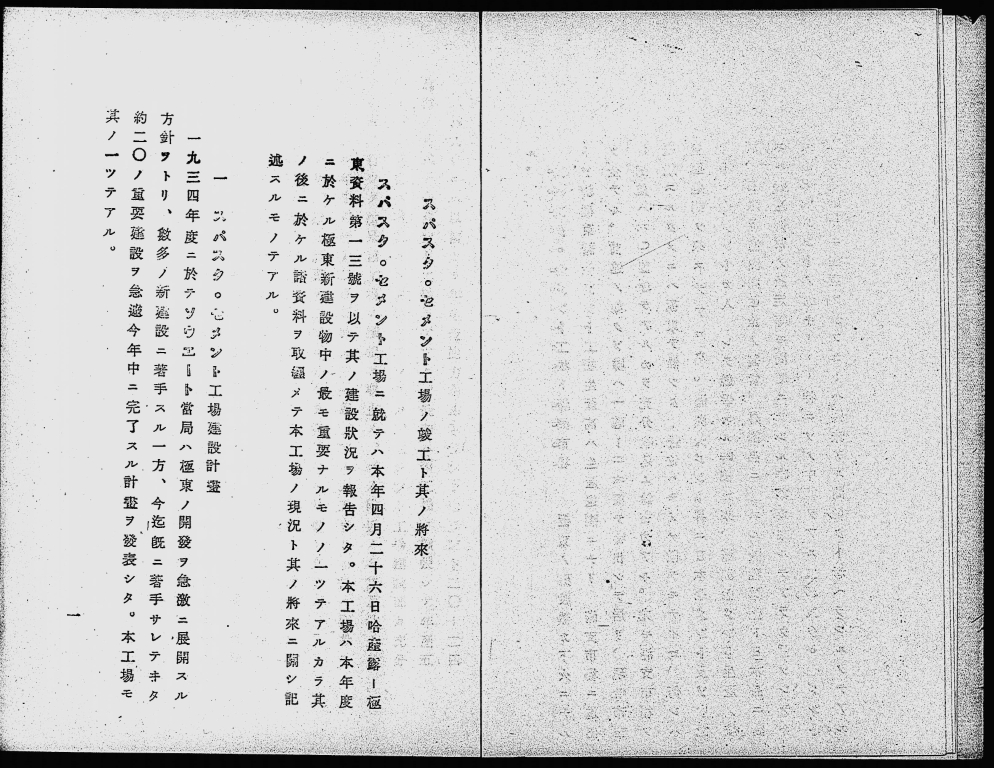 スパスク。セメント工場ノ竣工ト其ノ將來
スパスク。セメント工場ニ就テハ本年四月二十六日哈產露ー極
東資料第一三號ヲ以テ其ノ建設狀況ヲ報告シタ。本工場ハ本年度
ニ於ケル極東新建設物中ノ最モ重要ナルモノノ一ツテアルカラ其
ノ後ニ於ケル諸資料ヲ取纒メテ本工場ノ現況ト其ノ將來ニ關シ記
述スルモノテアル。
一 スパスク。セメント工場建設計畫
一九三四年度ニ於テソウエート當局ハ極東ノ開發ヲ急激ニ展開スル
方針ヲトリ、數多ノ新建設ニ著手スル一方、今迄既ニ著手サレテキタ
約二〇ノ重要建設ヲ急遽今年中ニ完了スル計畫ヲ發表シタ。本工場モ
其ノ一ツテアル。
一